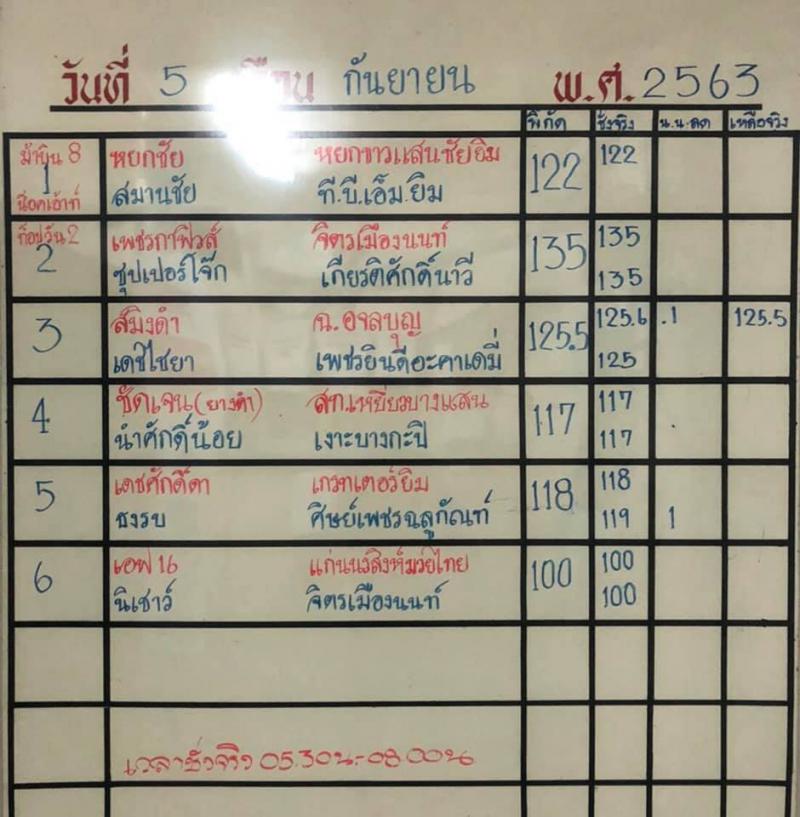 วันที่ 5 เดือน กันยายน พ.ศ. 2563
พิกัด ชั่งจริง น.น.ลด เหลือจริง
ม้าบิน 8 หยกชัย หยกขาวแสนชัยยิม 122 122
1
น๊อคเอ้าท์ สมานชัย ที.บี.เอ็ม.ยิม
ท็อปวัน 2 เพชรกาฬิวส์ จิตรเมืองนนท์ 135 135
2 ซุปเปอร์โจ๊ก เกียรติศักดิ์นาวี 135
3 สมิงดำ ฉ.อจลบุญ 125.5 125.6 .1 125.5
เดชไชยา เพชรยินดีอะคาเดมี่ 125
4 ชัดเจน (ยางดำ) สท.เหยี่ยวบางแสน 117 117
นำศักดิ์น้อย เงาะบางกะปิ 117
5 เดชศักดิ์ดา เกรทเตอร์ยิม 118 118
ธงรบ ศิษย์เพชรฉลูกัณฑ์ 119 1
6 เอฟ 16 แก่นนรสิงห์มวยไทย 100 100
นิเชาว์ จิตรเมืองนนท์ 100
เวลาชั่งจริง 05.30น.-08.00น